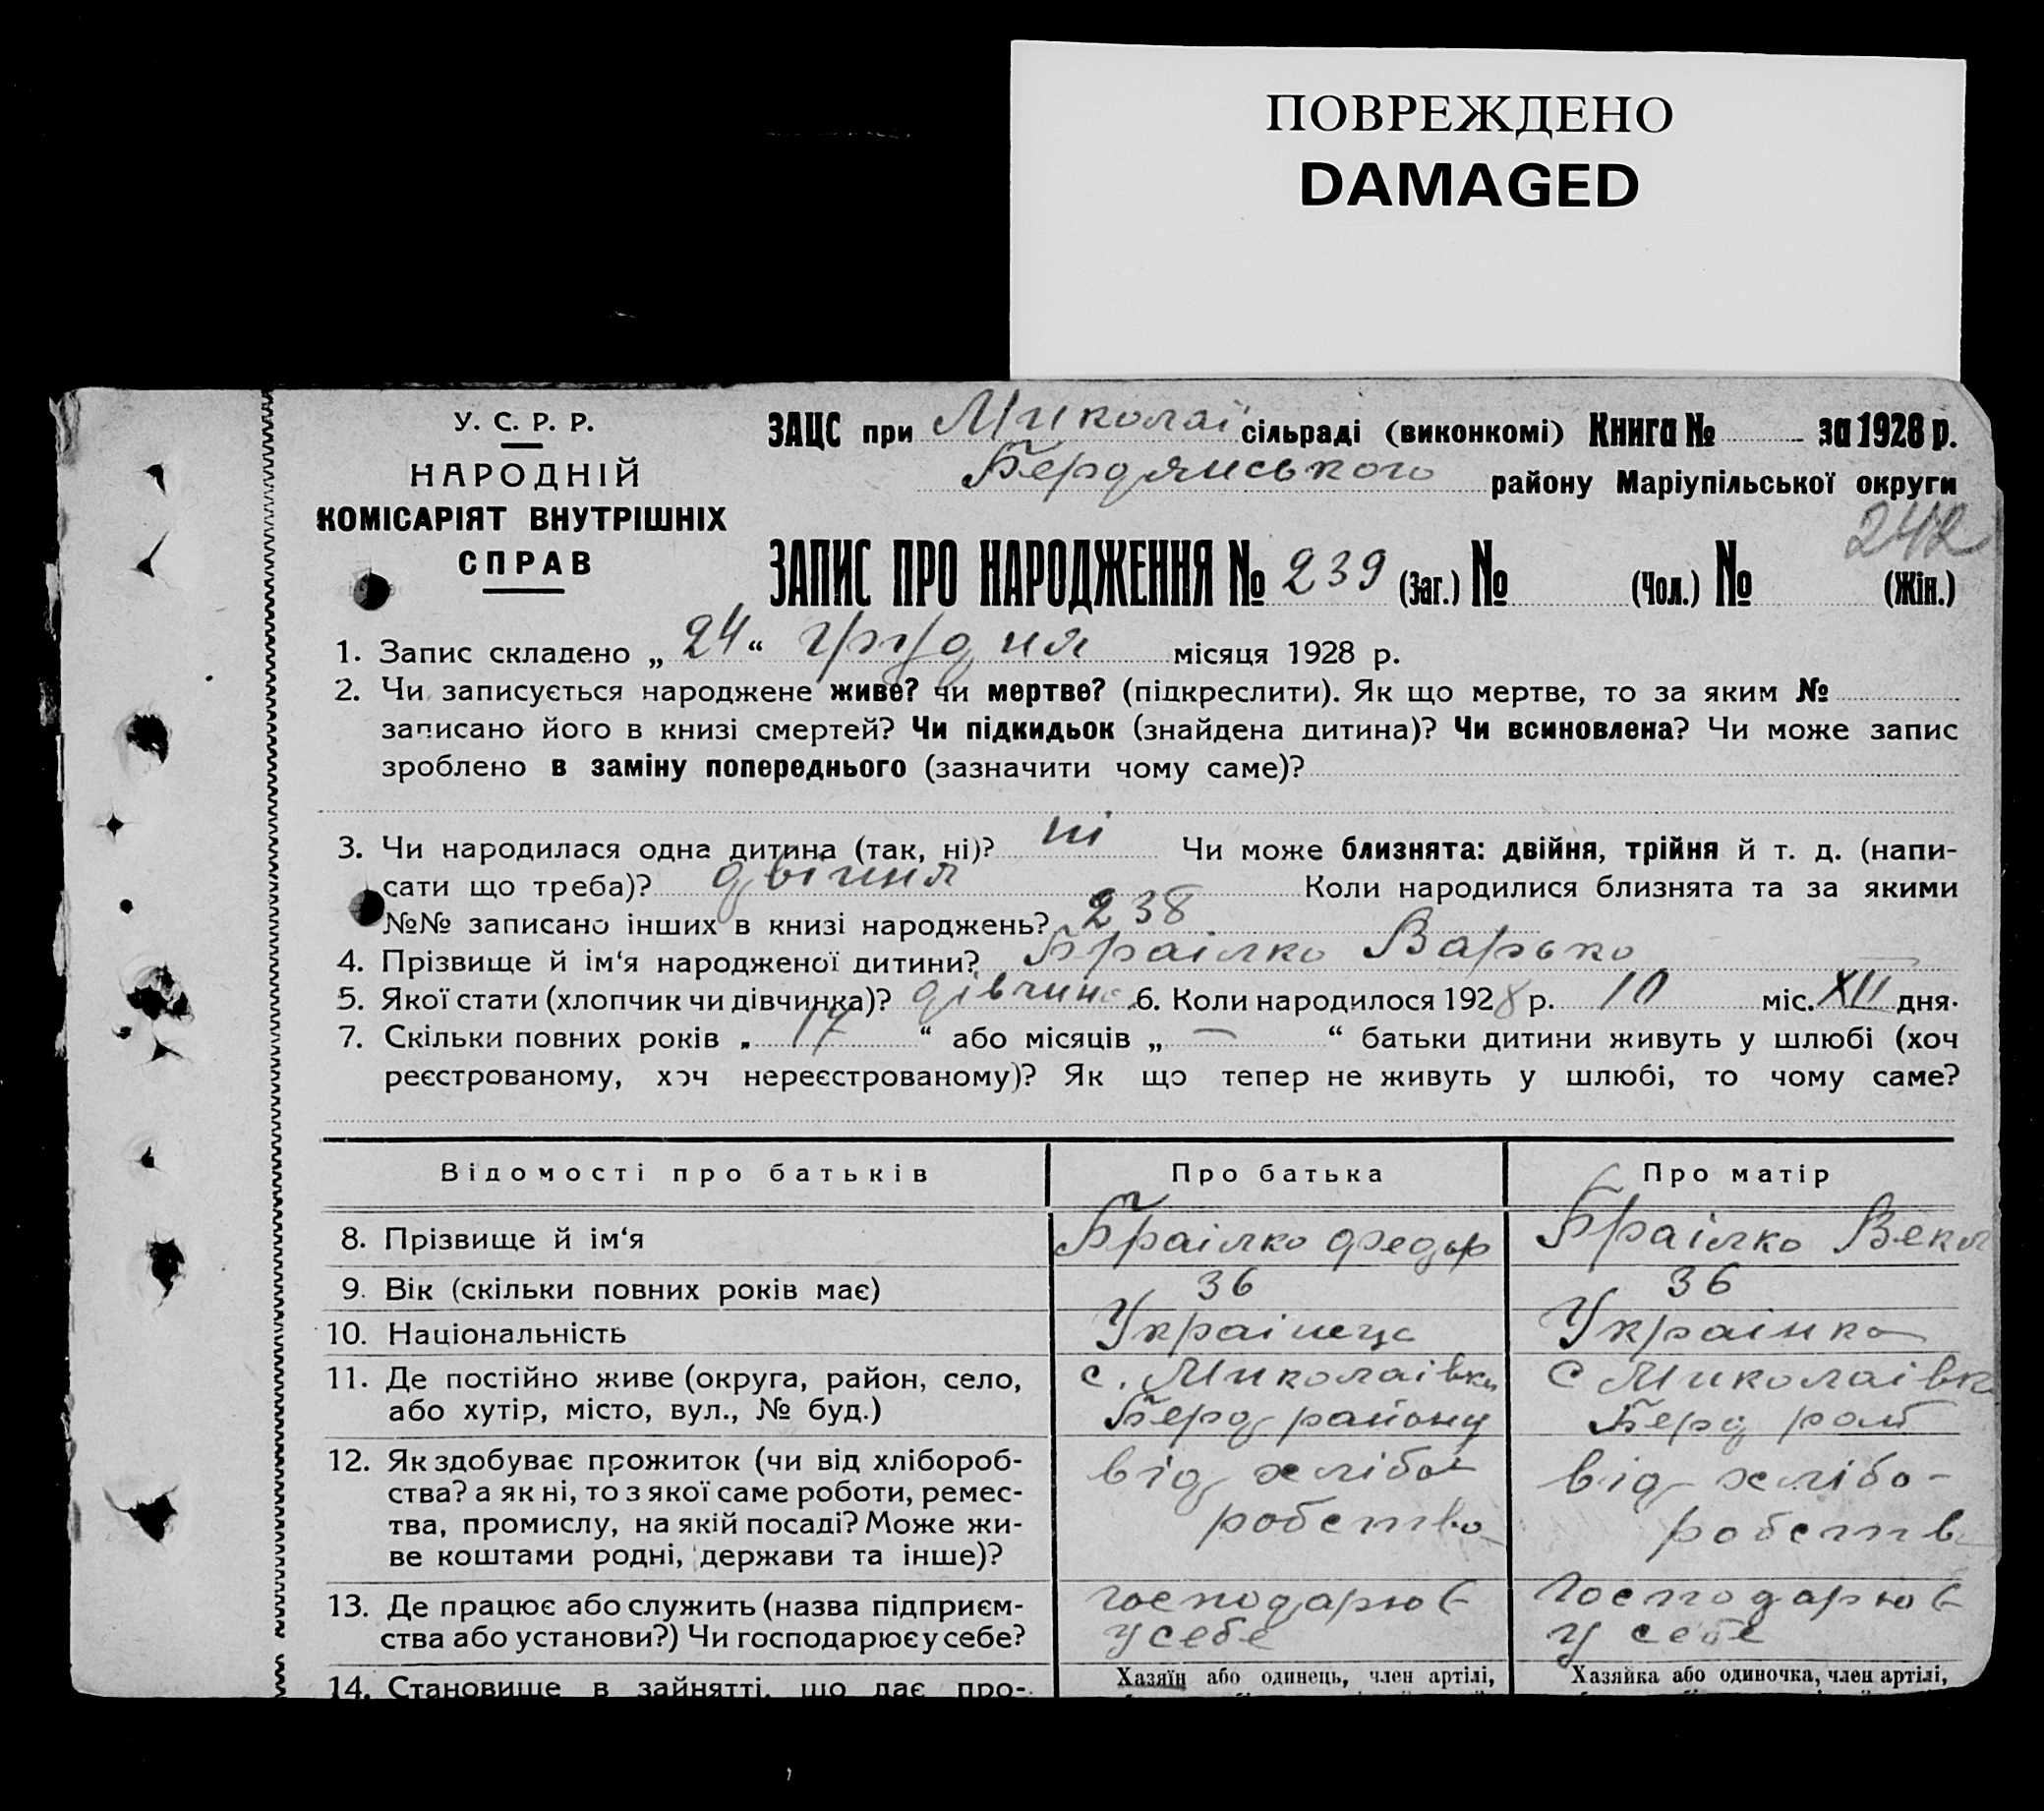 ПОВРЕЖДЕНО
DAMAGED
У. С. Р. Р.
НАРОДНІЙ
КОМІСАРІЯТ ВНУТРІШНІХ
СПРАВ
ЗАЦС при Миколаї сільраді (виконкомі) Книга № за 1928 р.
Бердянського району Маріупільської округи
242
ЗАПИС ПРО НАРОДЖЕННЯ № 239 (Заг.) № (Чол.) № (Жін.)
1. Запис складено „ 24 “ грудня місяця 1928 р.
2. Чи записується народжене живе? чи мертве? (підкреслити). Як що мертве, то за яким №
записано його в книзі смертей? Чи підкидьок (знайдена дитина)? Чи всиновлена? Чи може запис
зроблено в заміну попереднього (зазначити чому саме)?
3. Чи народилася одна дитина (так, ні)? ні Чи може близнята: двійня, трійня й т. д. (напи-
сати що треба)? двійня Коли народилися близнята та за якими
№№ записано інших в книзі народжень? 238
4. Прізвище й ім‘я народженої дитини? Браілко Варька
5. Якої стати (хлопчик чи дівчинка)? дівчина 6. Коли народилося 1928 р. 10 міс. XII дня.
7. Скільки повних років „ 17 “ або місяців „ — “ батьки дитини живуть у шлюбі (хоч
реєстрованому, хоч нереєстрованому)? Як що тепер не живуть у шлюбі, то чому саме?
Відомості про батьків Про батька Про матір
8. Прізвище й ім‘я Браілко Федор Браілко Векл
9. Вік (скільки повних років має) 36 36
10. Національність Українець Українка
11. Де постійно живе (округа, район, село, с. Миколаівки с Миколаівк
або хутір, місто, вул., № буд.) Берд району Берд рай
12. Як здобуває прожиток (чи від хлібороб- від хлібо- від хлібо-
ства? а як ні, то з якої саме роботи, ремес- робства робств
тва, промислу, на якій посаді? Може жи-
ве коштами родні, держави та інше)?
13. Де працює або служить (назва підприєм- господарює господарює
ства або установи?) Чи господарює у себе? у себе у себе
14. Становище в зайнятті, що дає про- Хазяїн або одинець, член артілі, Хазяйка або одиночка, член артілі,